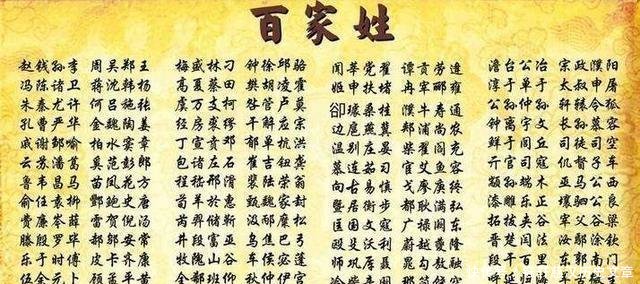 百家姓
赵钱孙李 周吴郑王 梅盛林刁 钟徐邱骆 闻莘党翟 谭贡劳逄 澹台公冶 宗政濮阳
冯陈褚卫 蒋沈韩杨 高夏蔡田 樊胡凌霍 姬申扶堵 冉宰郦雍 淳于单于 太叔申屠
朱秦尤许 何吕施张 虞万支柯 昝管卢莫 郤璩桑桂 濮牛寿通 公孙仲孙 轩辕令狐
孔曹严华 金魏陶姜 经房裘缪 干解应宗 边扈燕冀 郏浦尚农 钟离宇文 长孙慕容
戚谢邹喻 柏水窦章 丁宣贲邓 郁单杭洪 温别庄晏 柴瞿阎充 鲜于闾丘 司徒司空
云苏潘葛 奚范彭郎 包诸左石 崔吉钮龚 慕连茹习 宦艾鱼容 亓官司寇 仉督子车
鲁韦昌马 苗凤花方 程嵇邢滑 裴陆荣翁 向古易慎 戈廖庾终 颛孙端木 巫马公西
俞任袁柳 酆鲍史唐 荀羊於惠 甄曲家封 暨居衡步 都耿满弘 漆雕乐正 壤驷公良
费廉岑薛 雷贺倪汤 芮羿储靳 汲邴糜松 匡国文寇 广禄阙东 拓跋夹谷 宰父谷梁
滕殷罗毕 郝邬安常 井段富巫 乌焦巴弓 欧殳沃利 蔚越夔隆 晋楚闫法 汝鄢涂钦
乐于时傅 皮卞齐康 牧隗山谷 车侯宓蓬 师巩厍聂 晁勾敖融 段干百里 东郭南门
伍余元卜